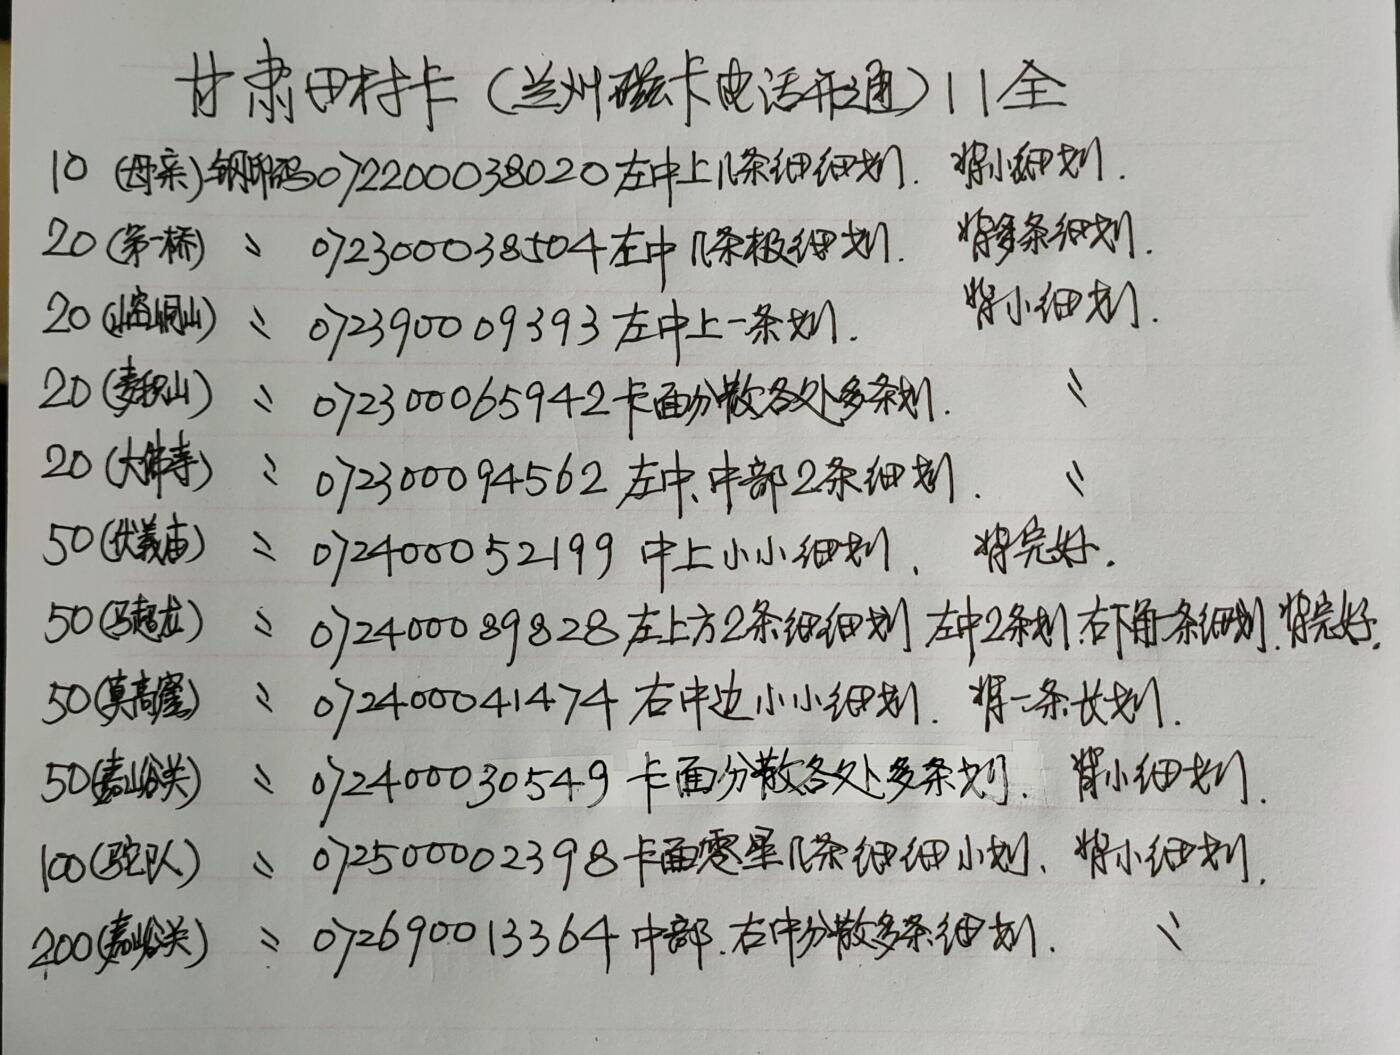 甘肃田村卡（兰州磁卡电话开通）11全
10（母亲）钢印码072200038020左中上几条细细划．背小细划．
20（第一桥）〃 072300038504左中几条极细划．背多条细划．
20（崆峒山）〃 072390009393左中上一条划．背小细划．
20（麦积山）〃 072300065942卡面分散各处多条划．〃
20（大佛寺）〃 072300094562左中、中部2条细划．〃
50（伏羲庙）〃 072400052199中上小小细划．背完好．
50（马超龙）〃 072400089828左上方2条细细划 左中2条划．右下角一条细划．背完好．
50（莫高窟）〃 072400041474右中边小小细划．背一条长划．
50（嘉峪关）〃 072400030549卡面分散各处多条划．背小细划．
100（驼队）〃 072500002398卡面零星几条细细小划．背小细划．
200（嘉峪关）〃 072690013364中部．右中分散多条细划．〃